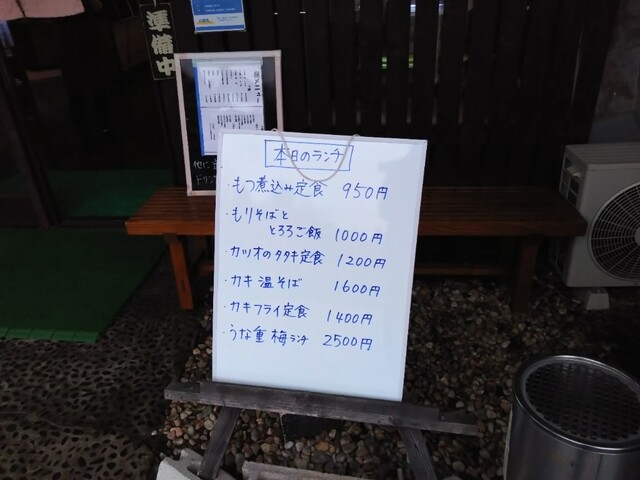 準備中
メニュー
他に
ドリン
本日のランチ
・もつ煮込み定食 950円
・もりそばと
とろろご飯 1000円
・カツオのタタキ定食 1200円
・カキ温そば 1600円
・カキフライ定食 1400円
・うな重 梅ランチ 2500円